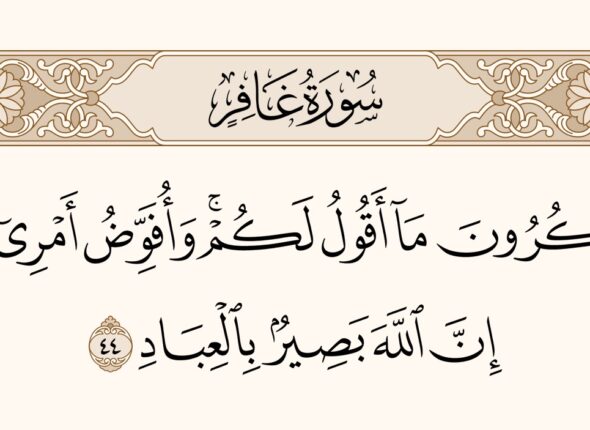 سُورَةُ غَافِرٍ
ـكُرُونَ مَآ أَقُولُ لَكُمْۚ وَأُفَوِّضُ أَمْرِىٓ
إِنَّ ٱللَّهَ بَصِيرُۢ بِٱلْعِبَادِ ٤٤